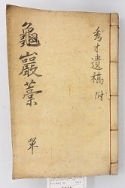 龜巖藁
單
秀才遺稿 附